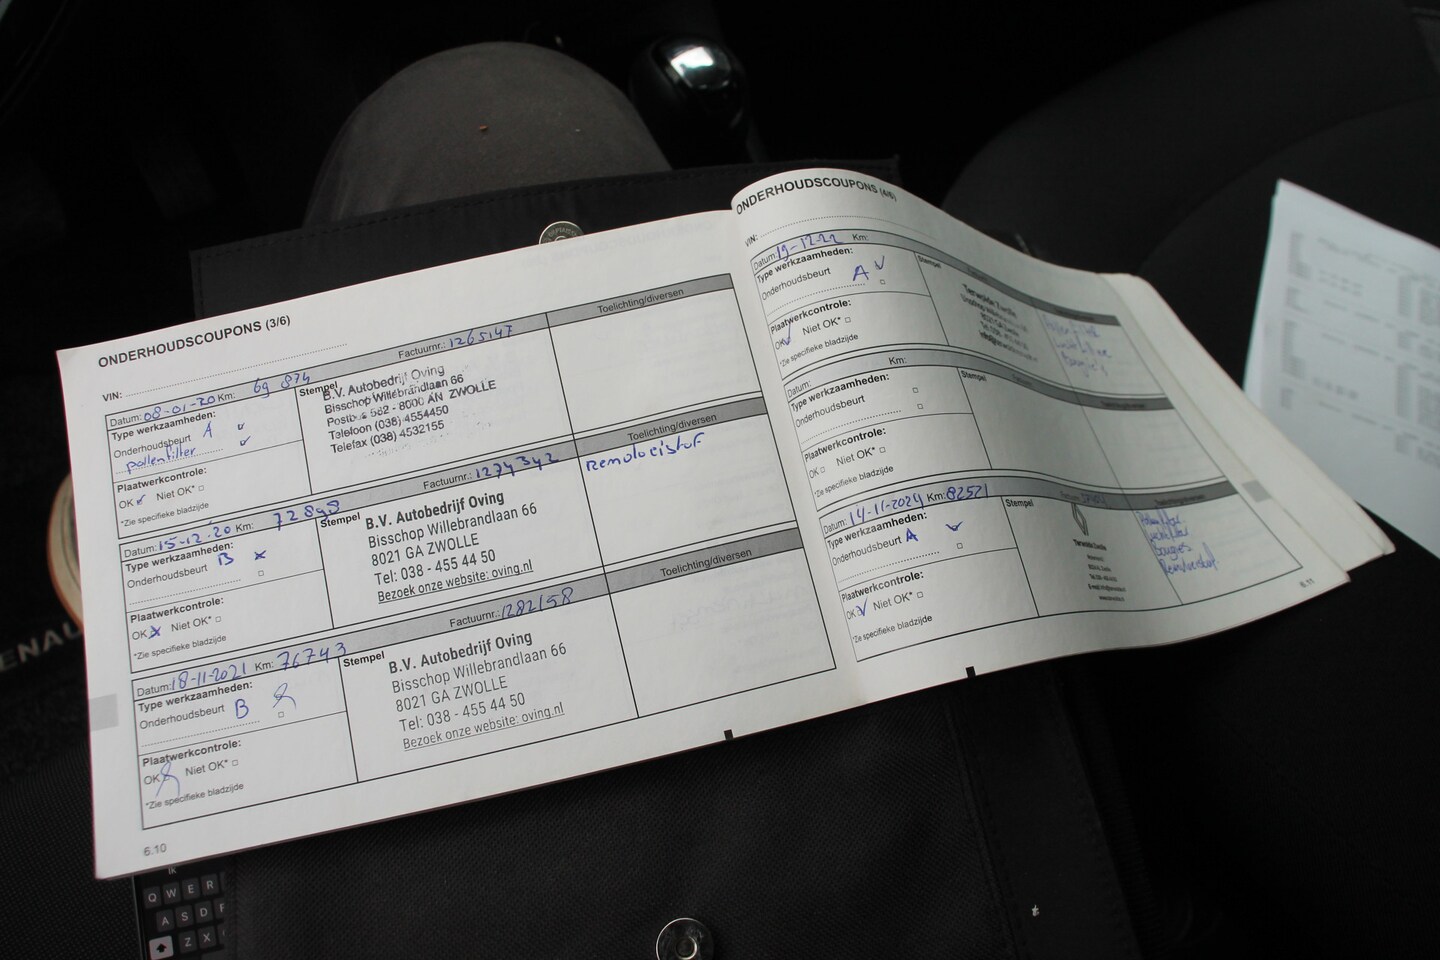 ONDERHOUDSCOUPONS (3/6)
VIN:
Datum: 08-01-20 Km: 69 874 Factuurnr.: 1265147 Toelichting/diversen
Type werkzaamheden:
Onderhoudsbeurt A
pollenfilter
Plaatwerkcontrole:
OK Niet OK*
*Zie specifieke bladzijde
Stempel
B.V. Autobedrijf Oving
Bisschop Willebrandlaan 66
582 - 8000 AN ZWOLLE
Telefoon (038) 4554450
Telefax (038) 4532155
Datum: 15-12-20 Km: 72898 Factuurnr.: 1274342 Toelichting/diversen
Type werkzaamheden:
Onderhoudsbeurt B
Plaatwerkcontrole:
OK Niet OK*
*Zie specifieke bladzijde
Stempel
B.V. Autobedrijf Oving
Bisschop Willebrandlaan 66
8021 GA ZWOLLE
Tel: 038 - 455 44 50
Bezoek onze website: oving.nl
Remvloeistof
Datum: 18-11-2021 Km: 76743 Factuurnr.: 1282158 Toelichting/diversen
Type werkzaamheden:
Onderhoudsbeurt B
Plaatwerkcontrole:
OK Niet OK*
*Zie specifieke bladzijde
Stempel
B.V. Autobedrijf Oving
Bisschop Willebrandlaan 66
8021 GA ZWOLLE
Tel: 038 - 455 44 50
Bezoek onze website: oving.nl
6.10
ONDERHOUDSCOUPONS (4/6)
VIN:
Datum: 19-12-22 Km:
Type werkzaamheden:
Onderhoudsbeurt A
Plaatwerkcontrole:
OK Niet OK
*Zie specifieke bladzijde
Stempel
Terwolde Zwolle
8021 GA Zwolle
Datum: Km:
Type werkzaamheden:
Onderhoudsbeurt
Plaatwerkcontrole:
OK Niet OK*
*Zie specifieke bladzijde
Stempel
Datum: 14-11-2024 Km: 82521
Type werkzaamheden:
Onderhoudsbeurt A
Plaatwerkcontrole:
OK Niet OK*
*Zie specifieke bladzijde
Stempel
Terwolde Zwolle
Toelichting/diversen
bougies
Remvloeistof
6.11
RENAU
Q W E R
A S D F
Z X